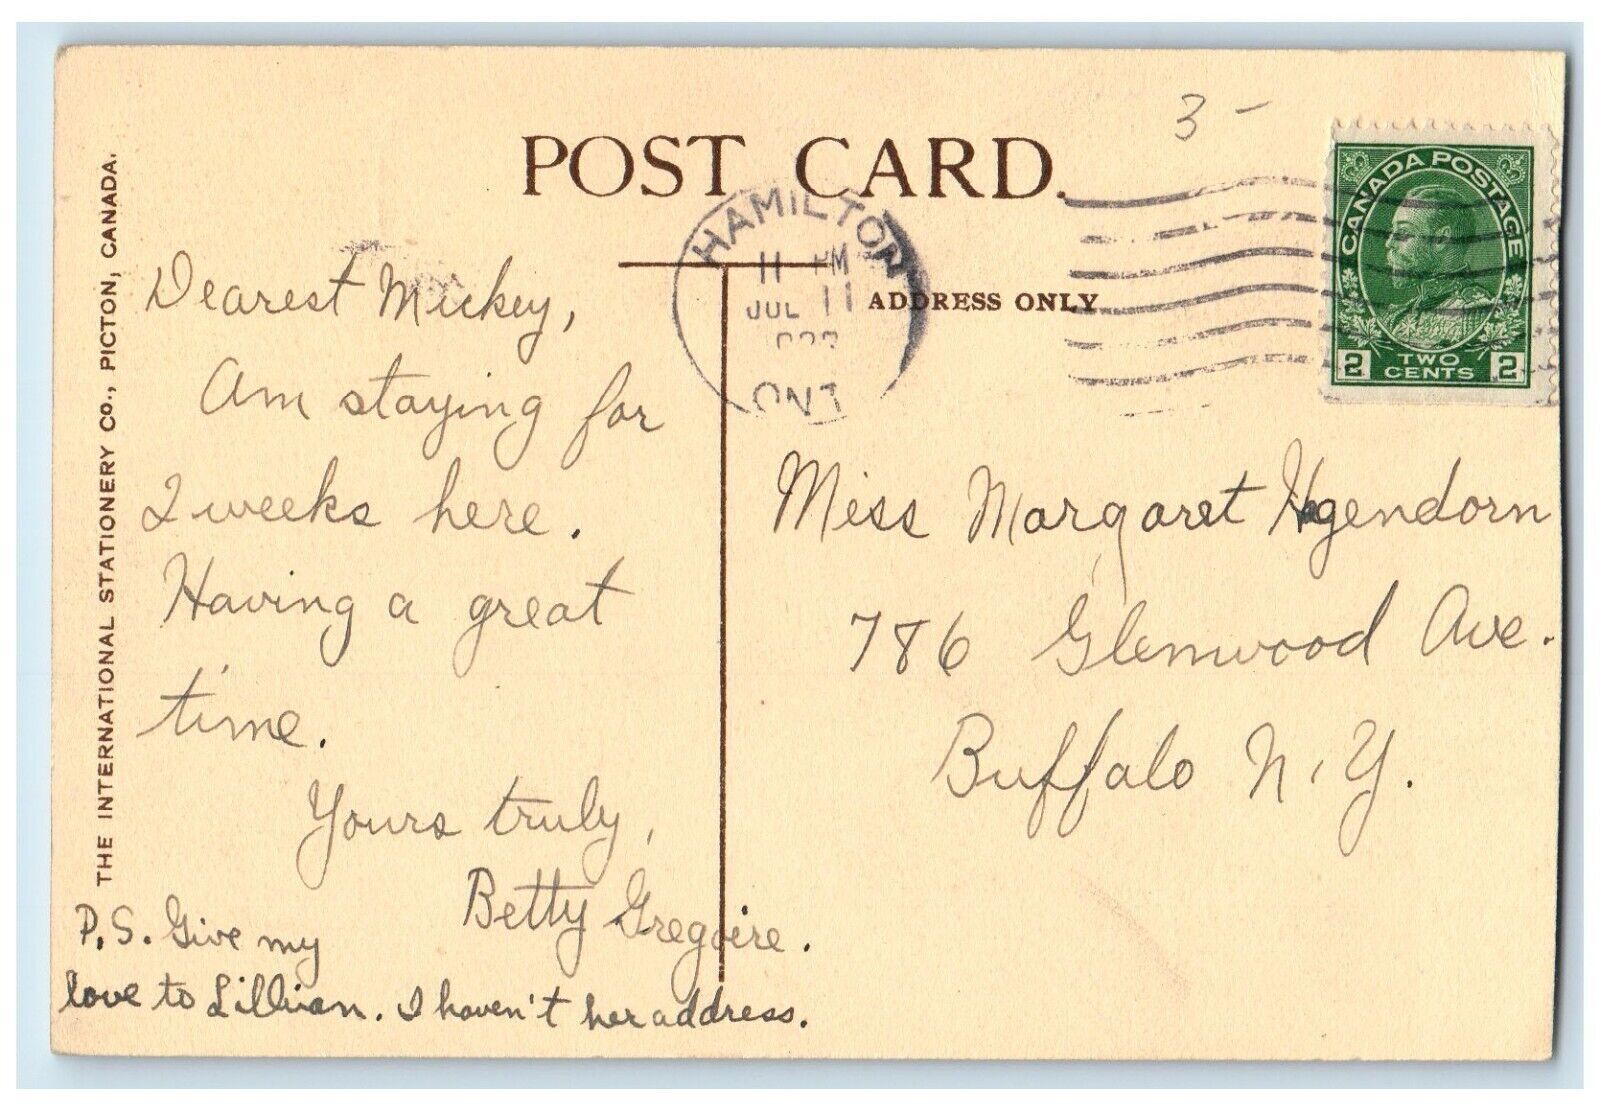 3 -
POST CARD.
HAMILTON
11 PM
JUL 11
ONT
ADDRESS ONLY
CANADA POSTAGE
2 TWO CENTS 2
THE INTERNATIONAL STATIONERY Co., PICTON, CANADA.
Dearest Mickey,
Am staying for
2 weeks here.
Having a great
time.
Yours truly,
Betty Gregoire.
P.S. Give my
love to Lillian. I haven't her address.
Miss Margaret Hogendorn
786 Glenwood Ave.
Buffalo N.Y.